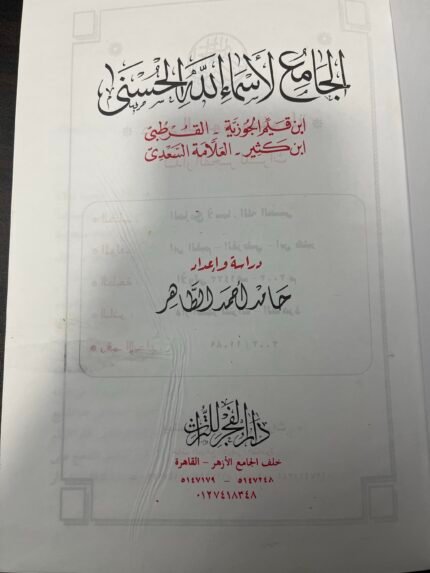 الجامع لأسماء الله الحسنى
ابن قيم الجوزية - القرطبي
ابن كثير - العلامة السعدي
دراسة وإعداد
حامد أحمد الطاهر
دار الفجر للتراث
خلف الجامع الأزهر - القاهرة
٥١٤٧٢٤٨ - ٥١٤٧١٧٩
٠١٢٧٤١٨٣٤٨